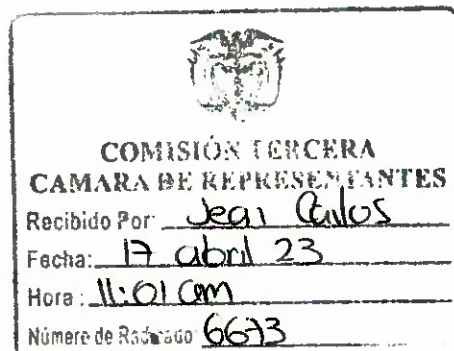 COMISIÓN TERCERA
CAMARA DE REPRESENTANTES
Recibido Por: Carlos
Fecha: 17 abril 23
Hora: 11:01 am
Número de Radicado 6673